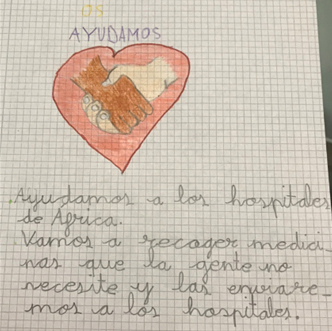 OS
AYUDAMOS
Ayudamos a los hospitales
de África.
Vamos a recoger medici-
nas que la gente no
necesite y las enviare-
mos a los hospitales.